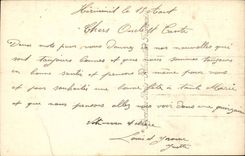 le 11 Aout
Chers Oncle et Tante
Deux mots pour vous donner de nos nouvelles qui
sont toujours bonnes et que nous sommes toujours
en bonne santé et pensons de même pour vous
et pour souhaiter une bonne fête a tante Marie
et que nous pensons allez vous voir dans une quinzaine
Louis et Yvonne